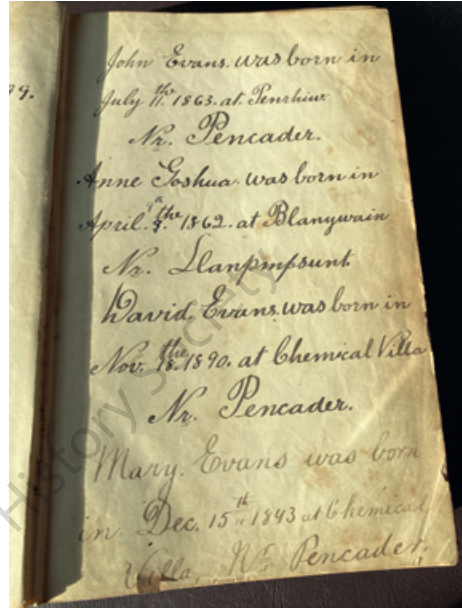 99.
John Evans. was born in
July 11.th 1863. at Penrhiw
Nr. Pencader.
Anne Joshua. was born in
April. 9.the 1862. at Blanywain
Nr. Llanpmpsunt
David. Evans. was born in
Nov. 18.the 1890. at Chemical Villa
Nr. Pencader.
Mary. Evans was born
in Dec. 15th 1893 at Chemical
Villa, Nr. Pencader.
History Society